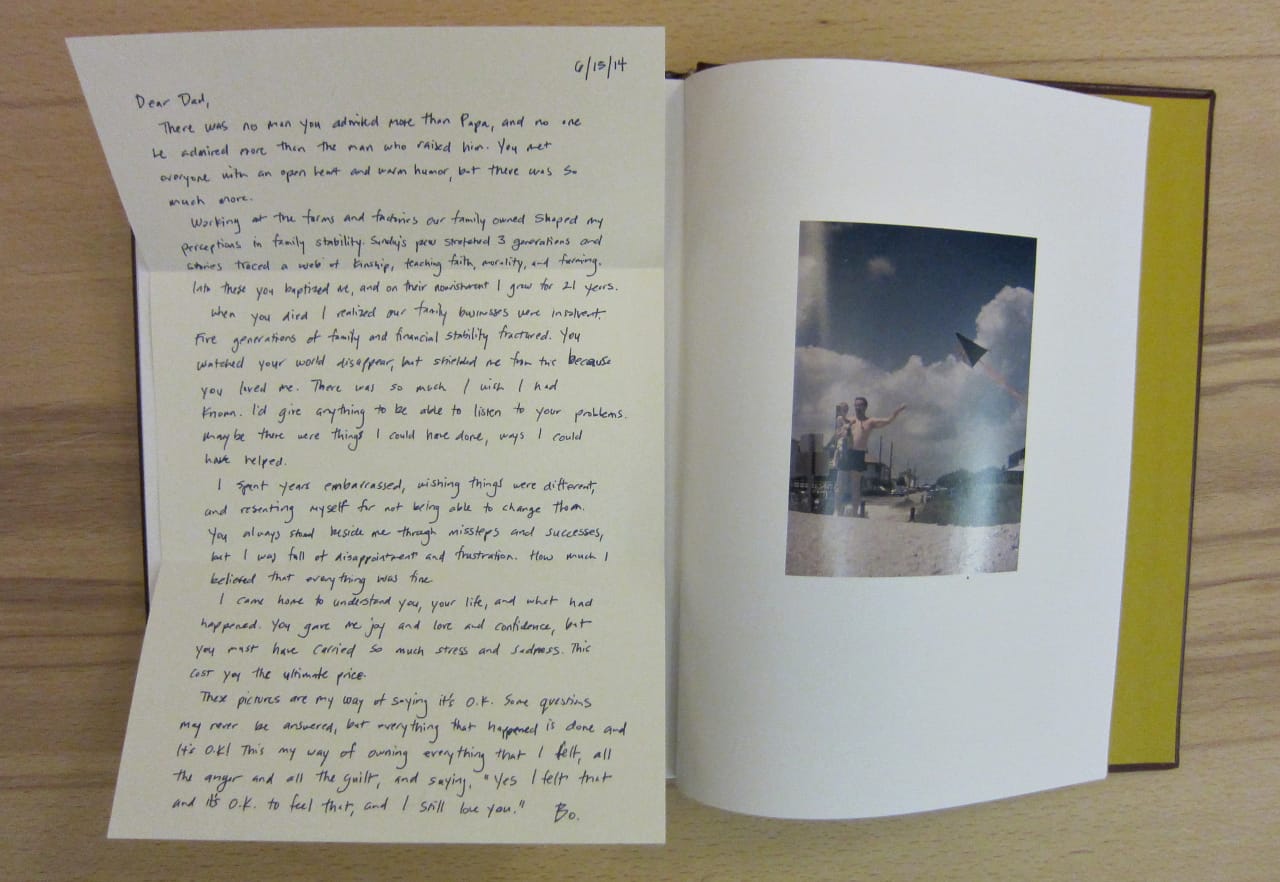 6/15/14
Dear Dad,
There was no man you admired more than Papa, and no one
he admired more than the man who raised him. You met
everyone with an open heart and warm humor, but there was so
much more.
Working at the farms and factories our family owned shaped my
perceptions in family stability. Sunday's pew stretched 3 generations and
stories traced a web of kinship, teaching faith, morality, and farming.
Into these you baptized me, and on their nourishment I grew for 21 years.
When you died I realized our family businesses were insolvent.
Five generations of family and financial stability fractured. You
watched your world disappear, but shielded me from this because
you loved me. There was so much I wish I had
known. I'd give anything to be able to listen to your problems.
maybe there were things I could have done, ways I could
have helped.
I spent years embarrassed, wishing things were different,
and resenting myself for not being able to change them.
You always stood beside me through missteps and successes,
but I was full of disappointment and frustration. How much I
believed that everything was fine.
I came home to understand you, your life, and what had
happened. You gave me joy and love and confidence, but
you must have carried so much stress and sadness. This
cost you the ultimate price.
These pictures are my way of saying it's O.K. Some questions
may never be answered, but everything that happened is done and
it's O.K! This my way of owning everything that I felt, all
the anger and all the guilt, and saying, "Yes I felt that
and it's O.K. to feel that, and I still love you." Bo.